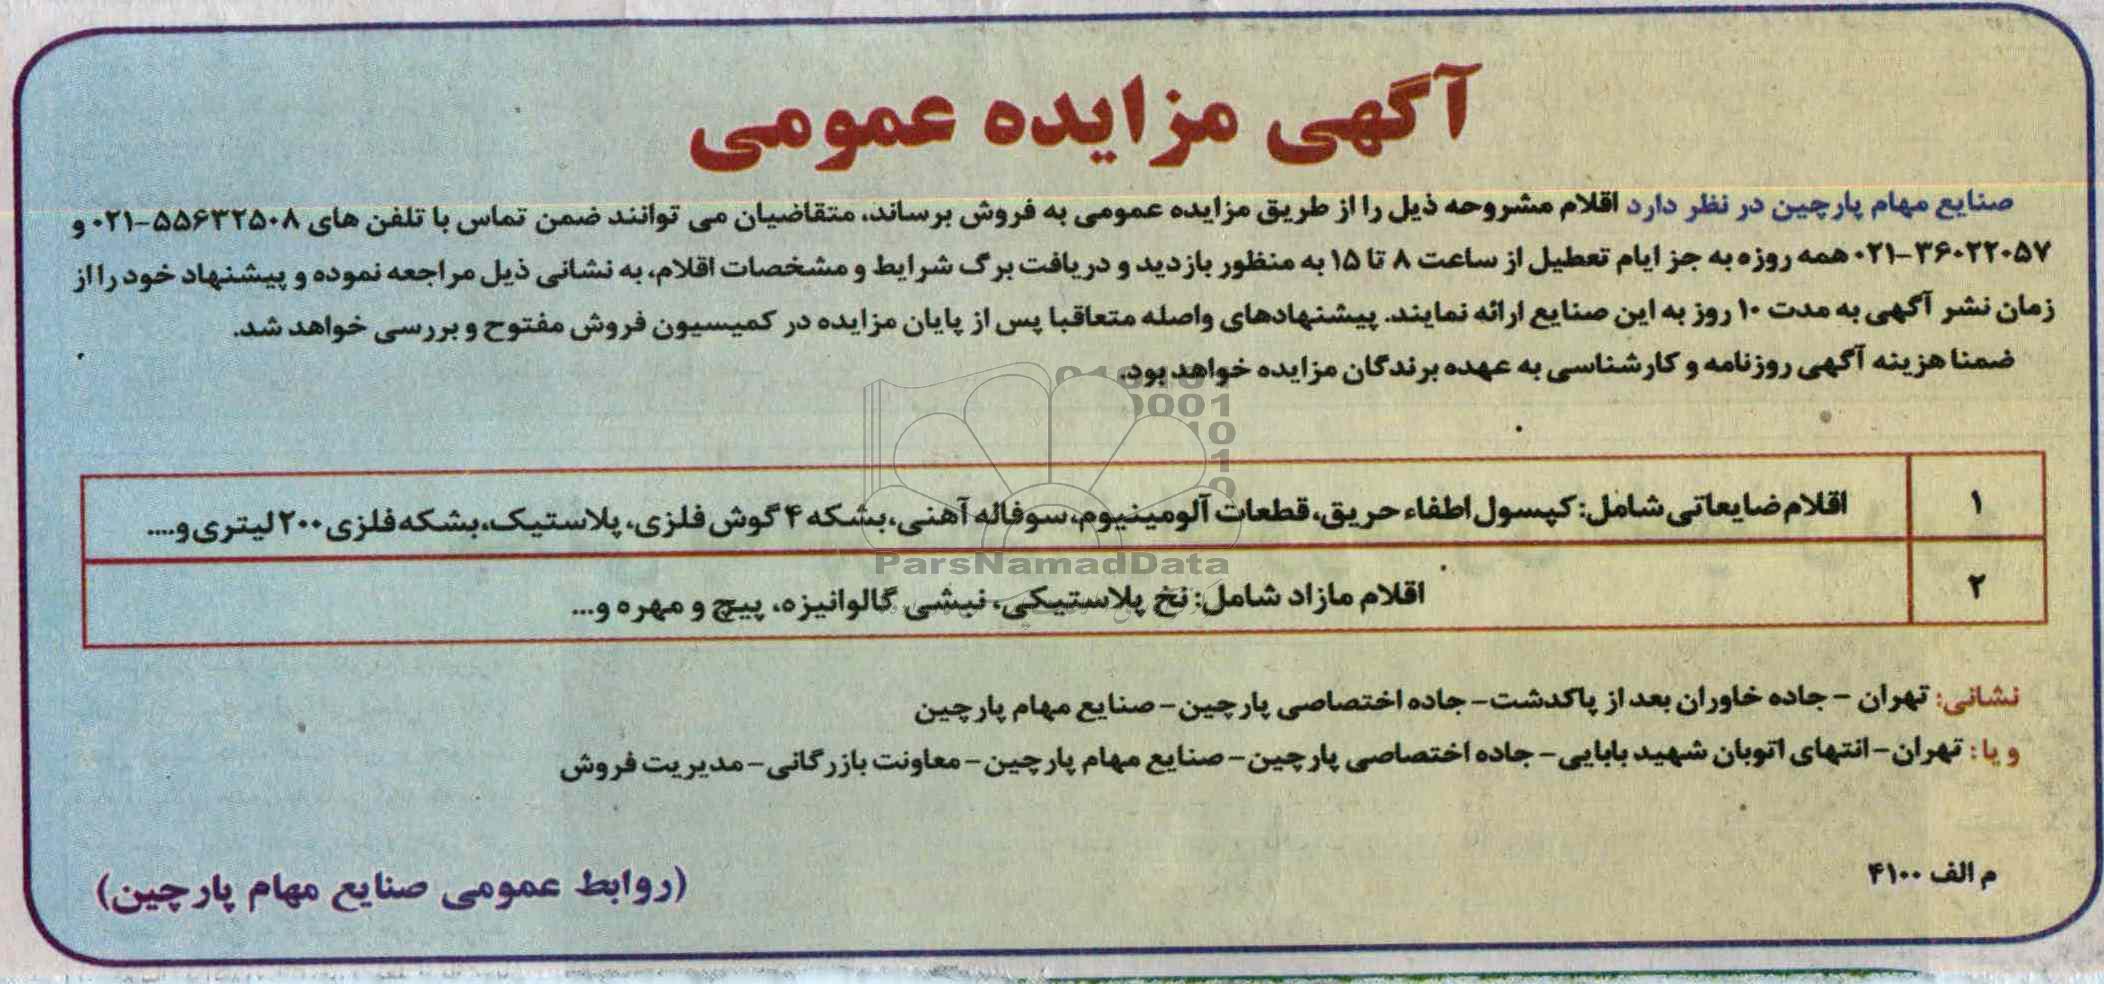 آگهی مزایده عمومی
صنایع مهام پارچین در نظر دارد اقلام مشروحه ذیل را از طریق مزایده عمومی به فروش برساند، متقاضیان می توانند ضمن تماس با تلفن های ۵۵۶۳۲۵۰۸-۰۲۱ و
۳۶۰۲۲۰۵۷-۰۲۱ همه روزه به جز ایام تعطیل از ساعت ۸ تا ۱۵ به منظور بازدید و دریافت برگ شرایط و مشخصات اقلام، به نشانی ذیل مراجعه نموده و پیشنهاد خود را از
زمان نشر آگهی به مدت ۱۰ روز به این صنایع ارائه نمایند. پیشنهادهای واصله متعاقبا پس از پایان مزایده در کمیسیون فروش مفتوح و بررسی خواهد شد.
ضمنا هزینه آگهی روزنامه و کارشناسی به عهده برندگان مزایده خواهد بود.
۱ اقلام ضایعاتی شامل: کپسول اطفاء حریق، قطعات آلومینیوم، سوفاله آهنی، بشکه ۴ گوش فلزی، پلاستیک، بشکه فلزی ۲۰۰ لیتری و....
ParsNamadData
۲ اقلام مازاد شامل: نخ پلاستیکی، نبشی گالوانیزه، پیچ و مهره و...
نشانی: تهران - جاده خاوران بعد از پاکدشت- جاده اختصاصی پارچین- صنایع مهام پارچین
و یا: تهران- انتهای اتوبان شهید بابایی- جاده اختصاصی پارچین- صنایع مهام پارچین- معاونت بازرگانی- مدیریت فروش
م الف ۴۱۰۰
(روابط عمومی صنایع مهام پارچین)